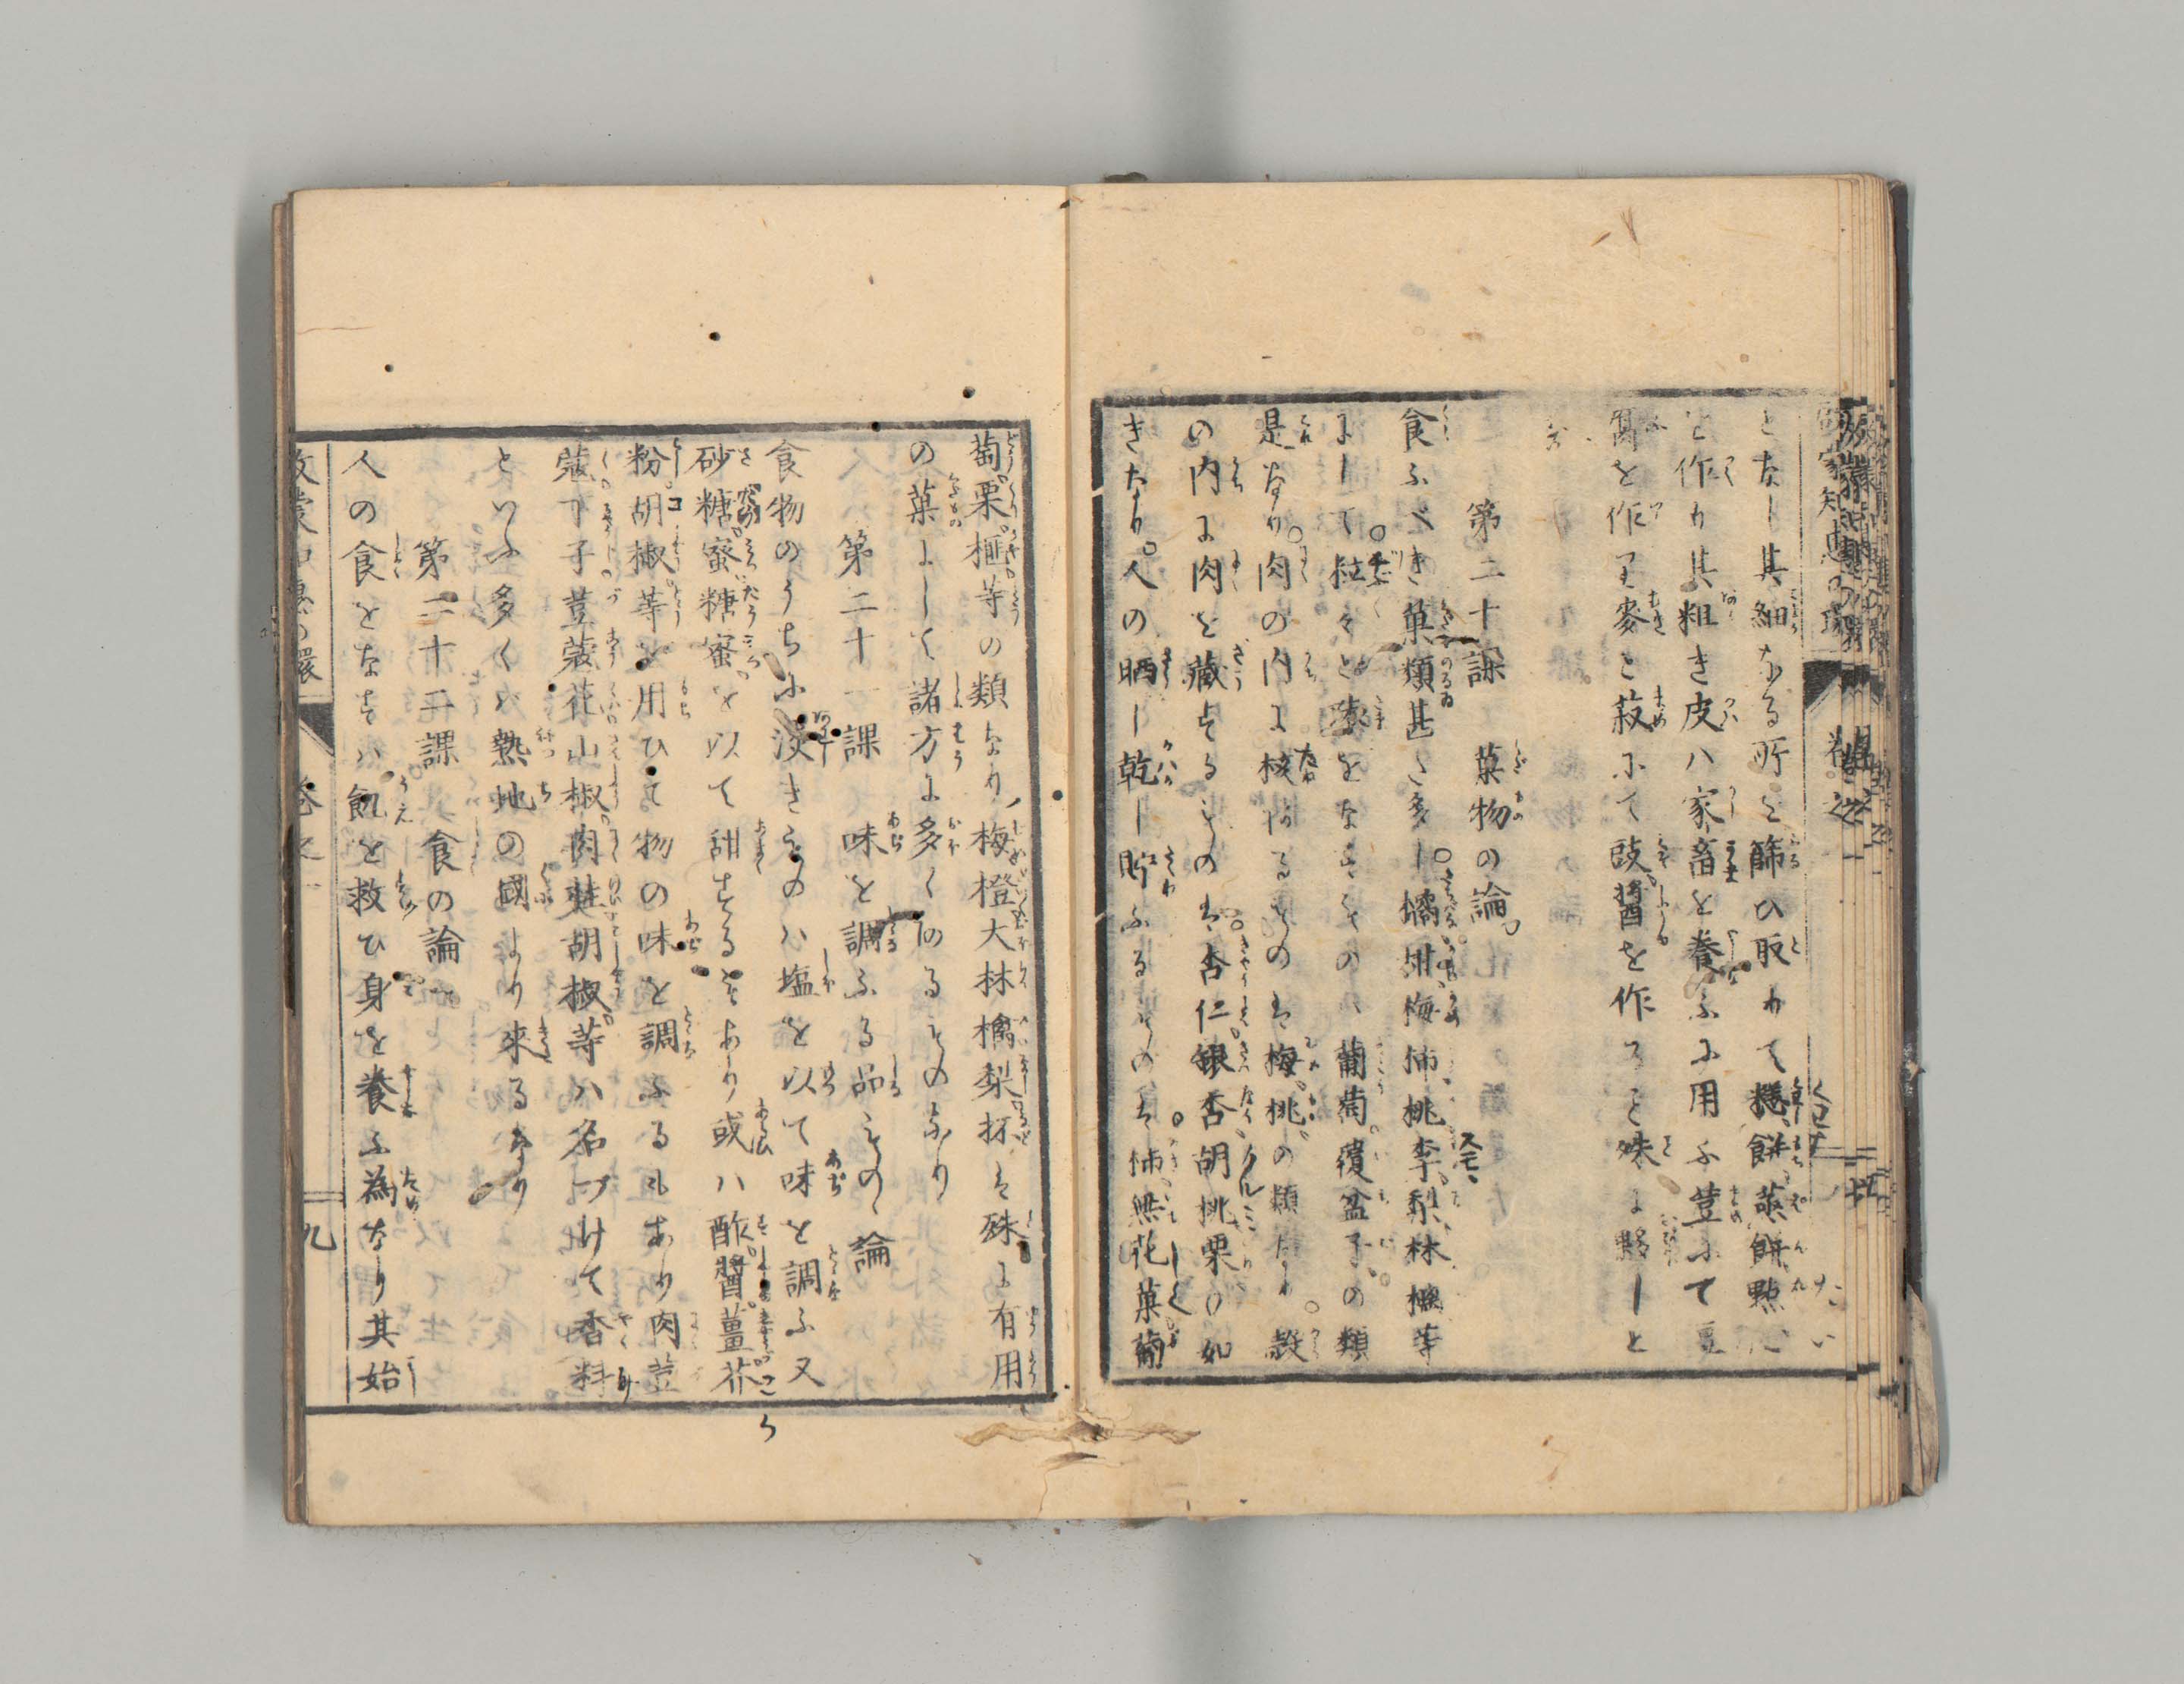 となし其細なる所を篩ひ取りて麺餅蒸餅點心
を作り其粗き皮ハ家畜を養ふに用ふ荳にて豆
腐を作り又麥と菽にて豉醤を作ること殊に夥しと
す
第二十課 菓物の論
食ふべき菓類甚だ多し橘柑梅柿桃李梨林檎等
にして粒々と湊をなすものハ葡萄覆盆子の類
是なり肉の内に核あるものは梅桃の類なり殻
の内に肉を藏するものは杏仁銀杏胡桃栗の如
きなり人の晒し乾し貯ふるものは柿無花菓葡
萄栗榧等の類なり梅橙大林檎梨抔は殊に有用
の菓にして諸方に多くあるものなり
第二十一課 味を調ふる品ものゝ論
食物のうちに淡きものハ塩を以て味を調ふ又
砂糖蜜糖蜜を以て甜するもあり或ハ酢醤薑芥
粉胡椒等を用ひて物の味を調ふるもあり肉荳
蔲丁子荳蔲花山椒肉桂胡椒等ハ名づけて香料
といふ多くハ熱地の國より来るなり
第二十二課 食の論
人の食をなすハ飢を救ひ身を養ふ為なり其始
啓蒙知恵の環 巻之一 九